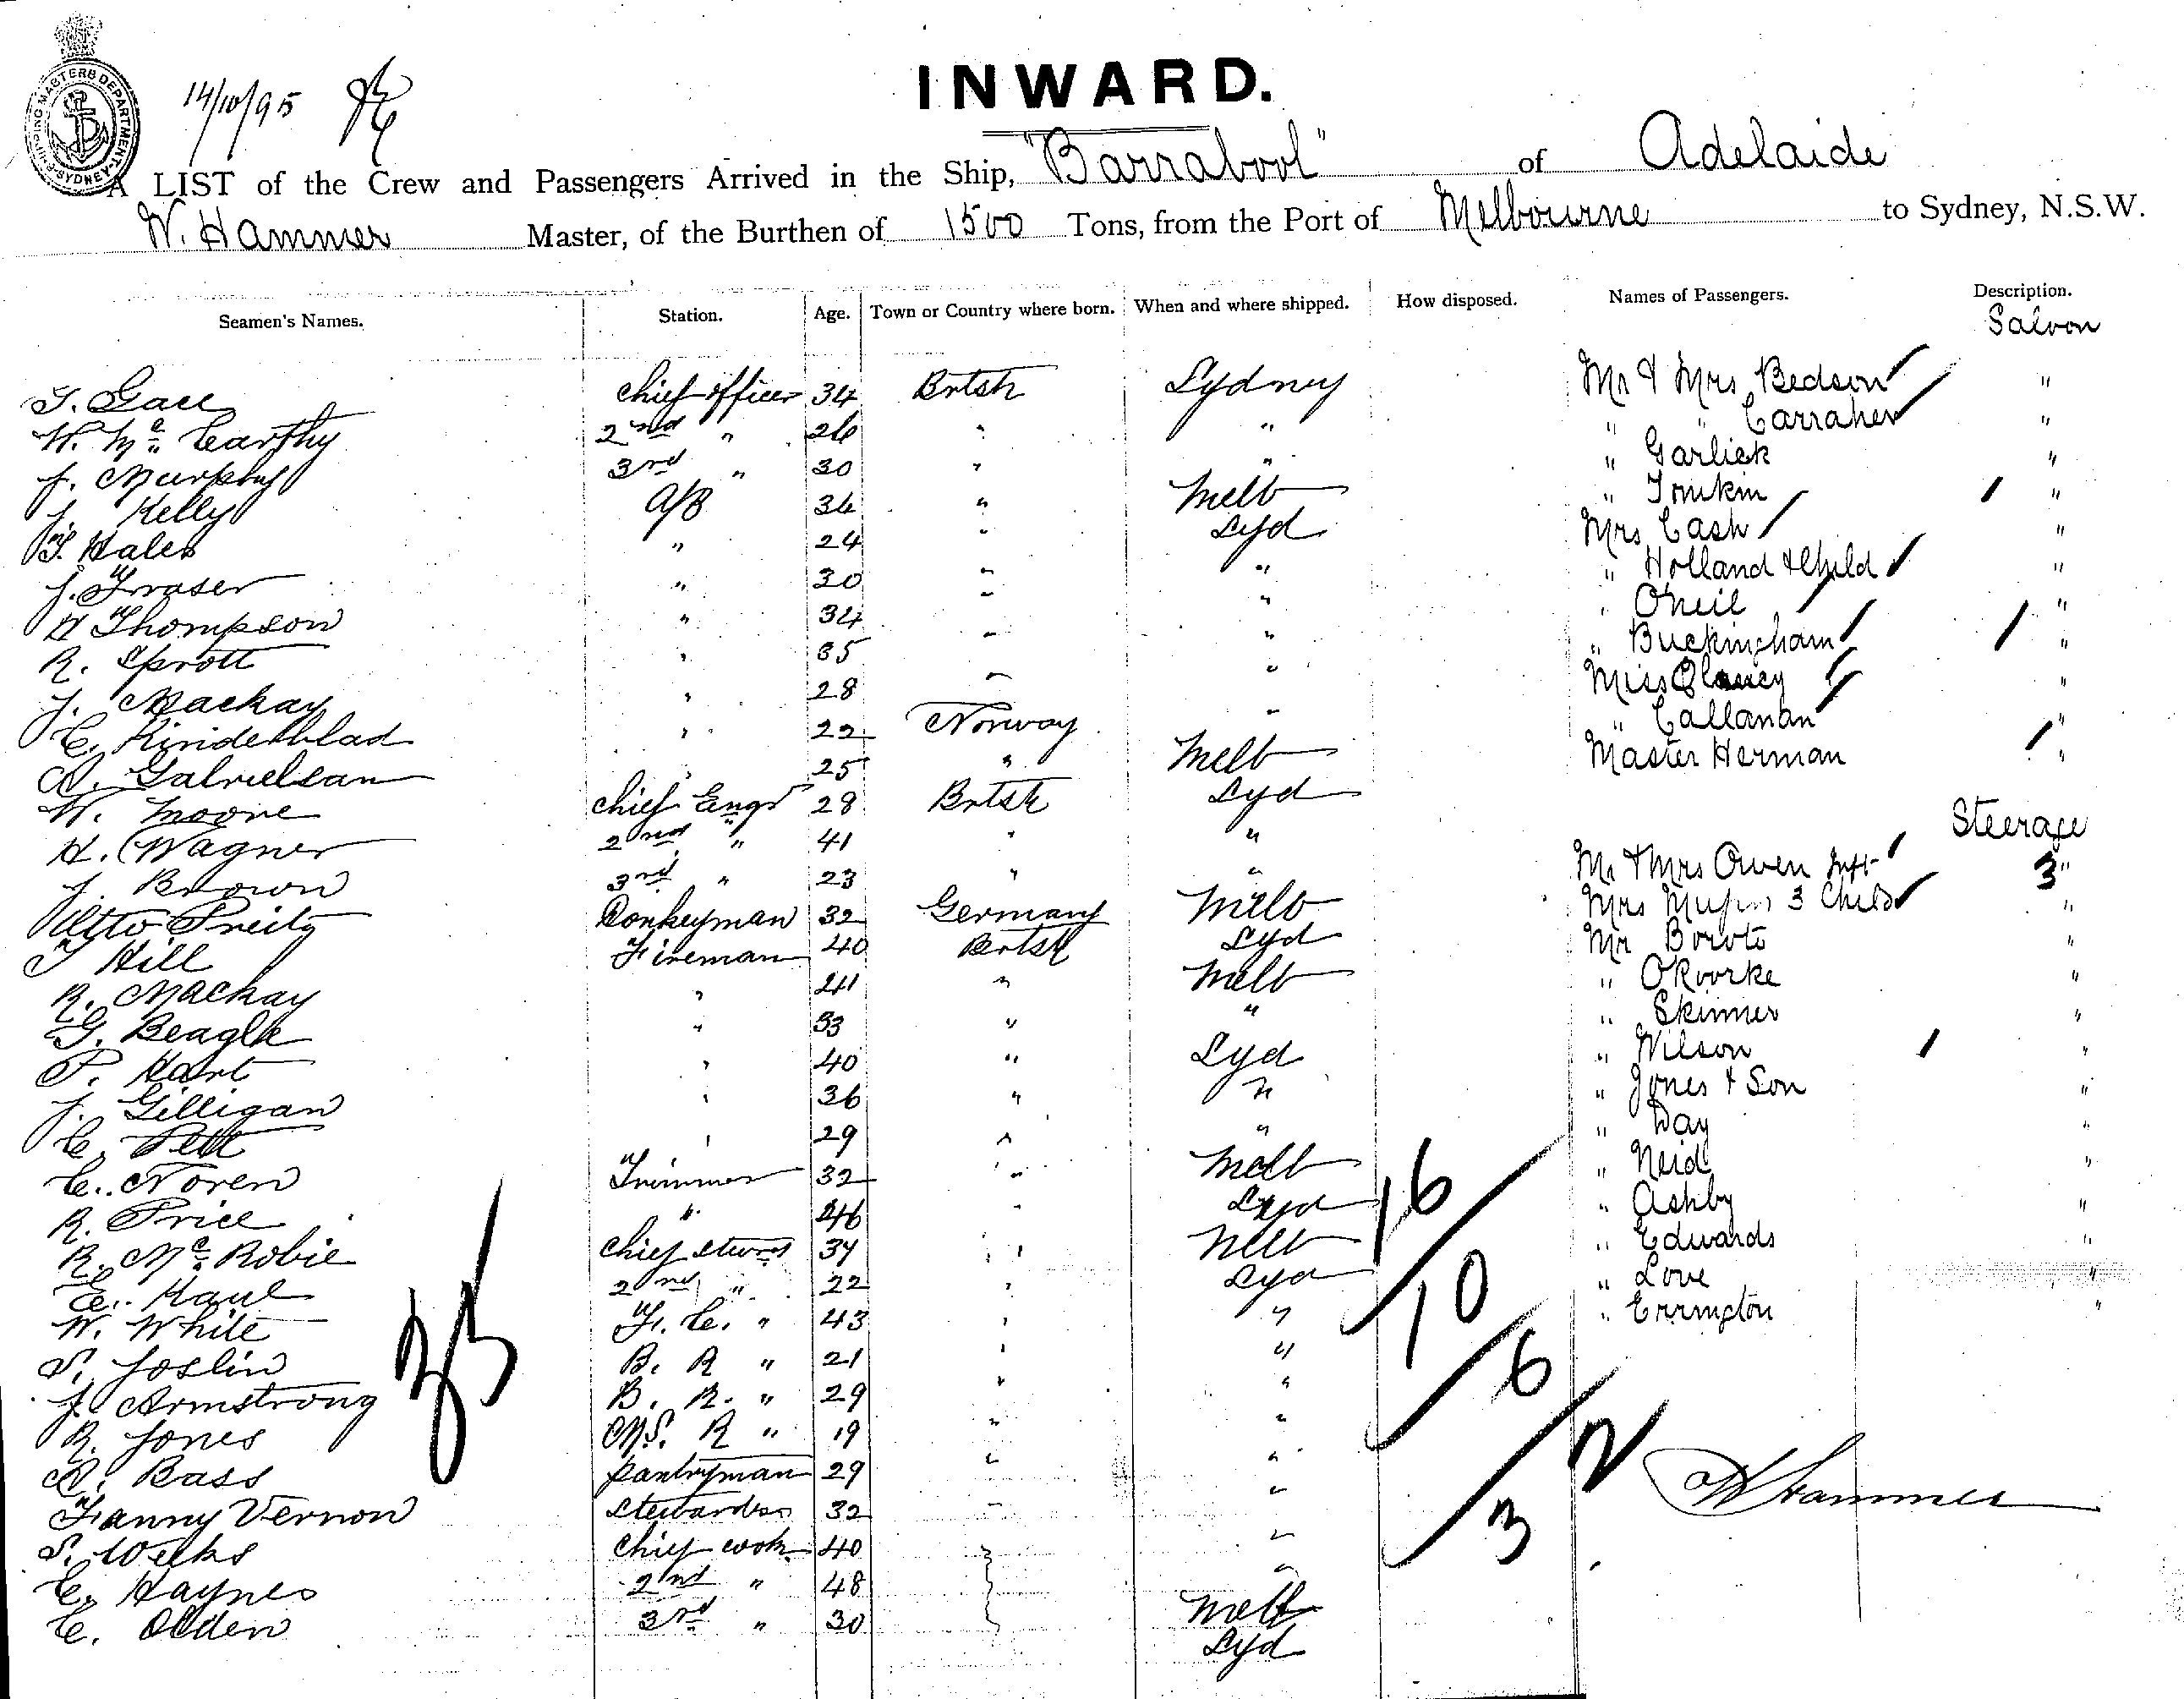 SHIPPING MASTERS DEPARTMENT. SYDNEY
14/10/95
INWARD.
A LIST of the Crew and Passengers Arrived in the Ship, "Barrabool" of Adelaide
W. Hammer Master, of the Burthen of 1500 Tons, from the Port of Melbourne to Sydney, N.S.W.
Seamen's Names. Station. Age. Town or Country where born. When and where shipped. How disposed. Names of Passengers. Description.
Saloon
chief officer 34 Brtsh Sydney Mr & Mrs Bedson "
W. Mc Carthy 2nd " 26 " " " " Carraher "
J. Murphy 3rd " 30 " " " Garlick "
J. Kelly A/B 36 " Melb " Tomkin "
T. Hales " 24 " Syd Mrs Cash "
J. Fraser " 30 " " " Holland & Child "
H Thompson " 34 " " " Oneil "
R. Sprott " 35 " " " Buckingham "
J. Mackay " 28 " " Miss Clancy "
C. Rindelblad " 22 Norway " " Callanan "
A. Gabrielsan " 25 " Melb Master Herman "
W. Moore chief Engr 28 Brtsh Syd
H. Wagner 2nd " 41 " " Steerage
J. Brown 3rd " 23 " " Mr & Mrs Owen Inft 3 "
Otto Donkeyman 32 Germany Melb Mrs 3 Child "
T Hill Fireman 40 Brtsh Syd Mr "
R. Mackay " 41 " Melb " ORoorke "
G. Beagle " 33 " " " Skinner "
P. Hart " 40 " Syd " Wilson "
J. Gilligan " 36 " " " Jones & Son "
C. Pett " 29 " " " Day "
C. Noren Trimmer 32 " Melb " Neid "
R. Price " 46 " Syd " Ashby "
R. Mc Robie chief stwrd 34 " Melb " Edwards "
2nd " 22 " Syd " Love "
W. White F. C. " 43 " " " Errington "
S. Joslin B. R " 21 " "
J. Armstrong B. R. " 29 " "
R. Jones M.S. R " 19 " "
A. Bass pantryman 29 " "
Fanny Vernon Stewardess 32 " "
S. Weeks chief cook 40 "
C. Haynes 2nd " 48 "
C. Olden 3rd " 30 Melb
Syd
35
16
10
6
2
3
W Hammer